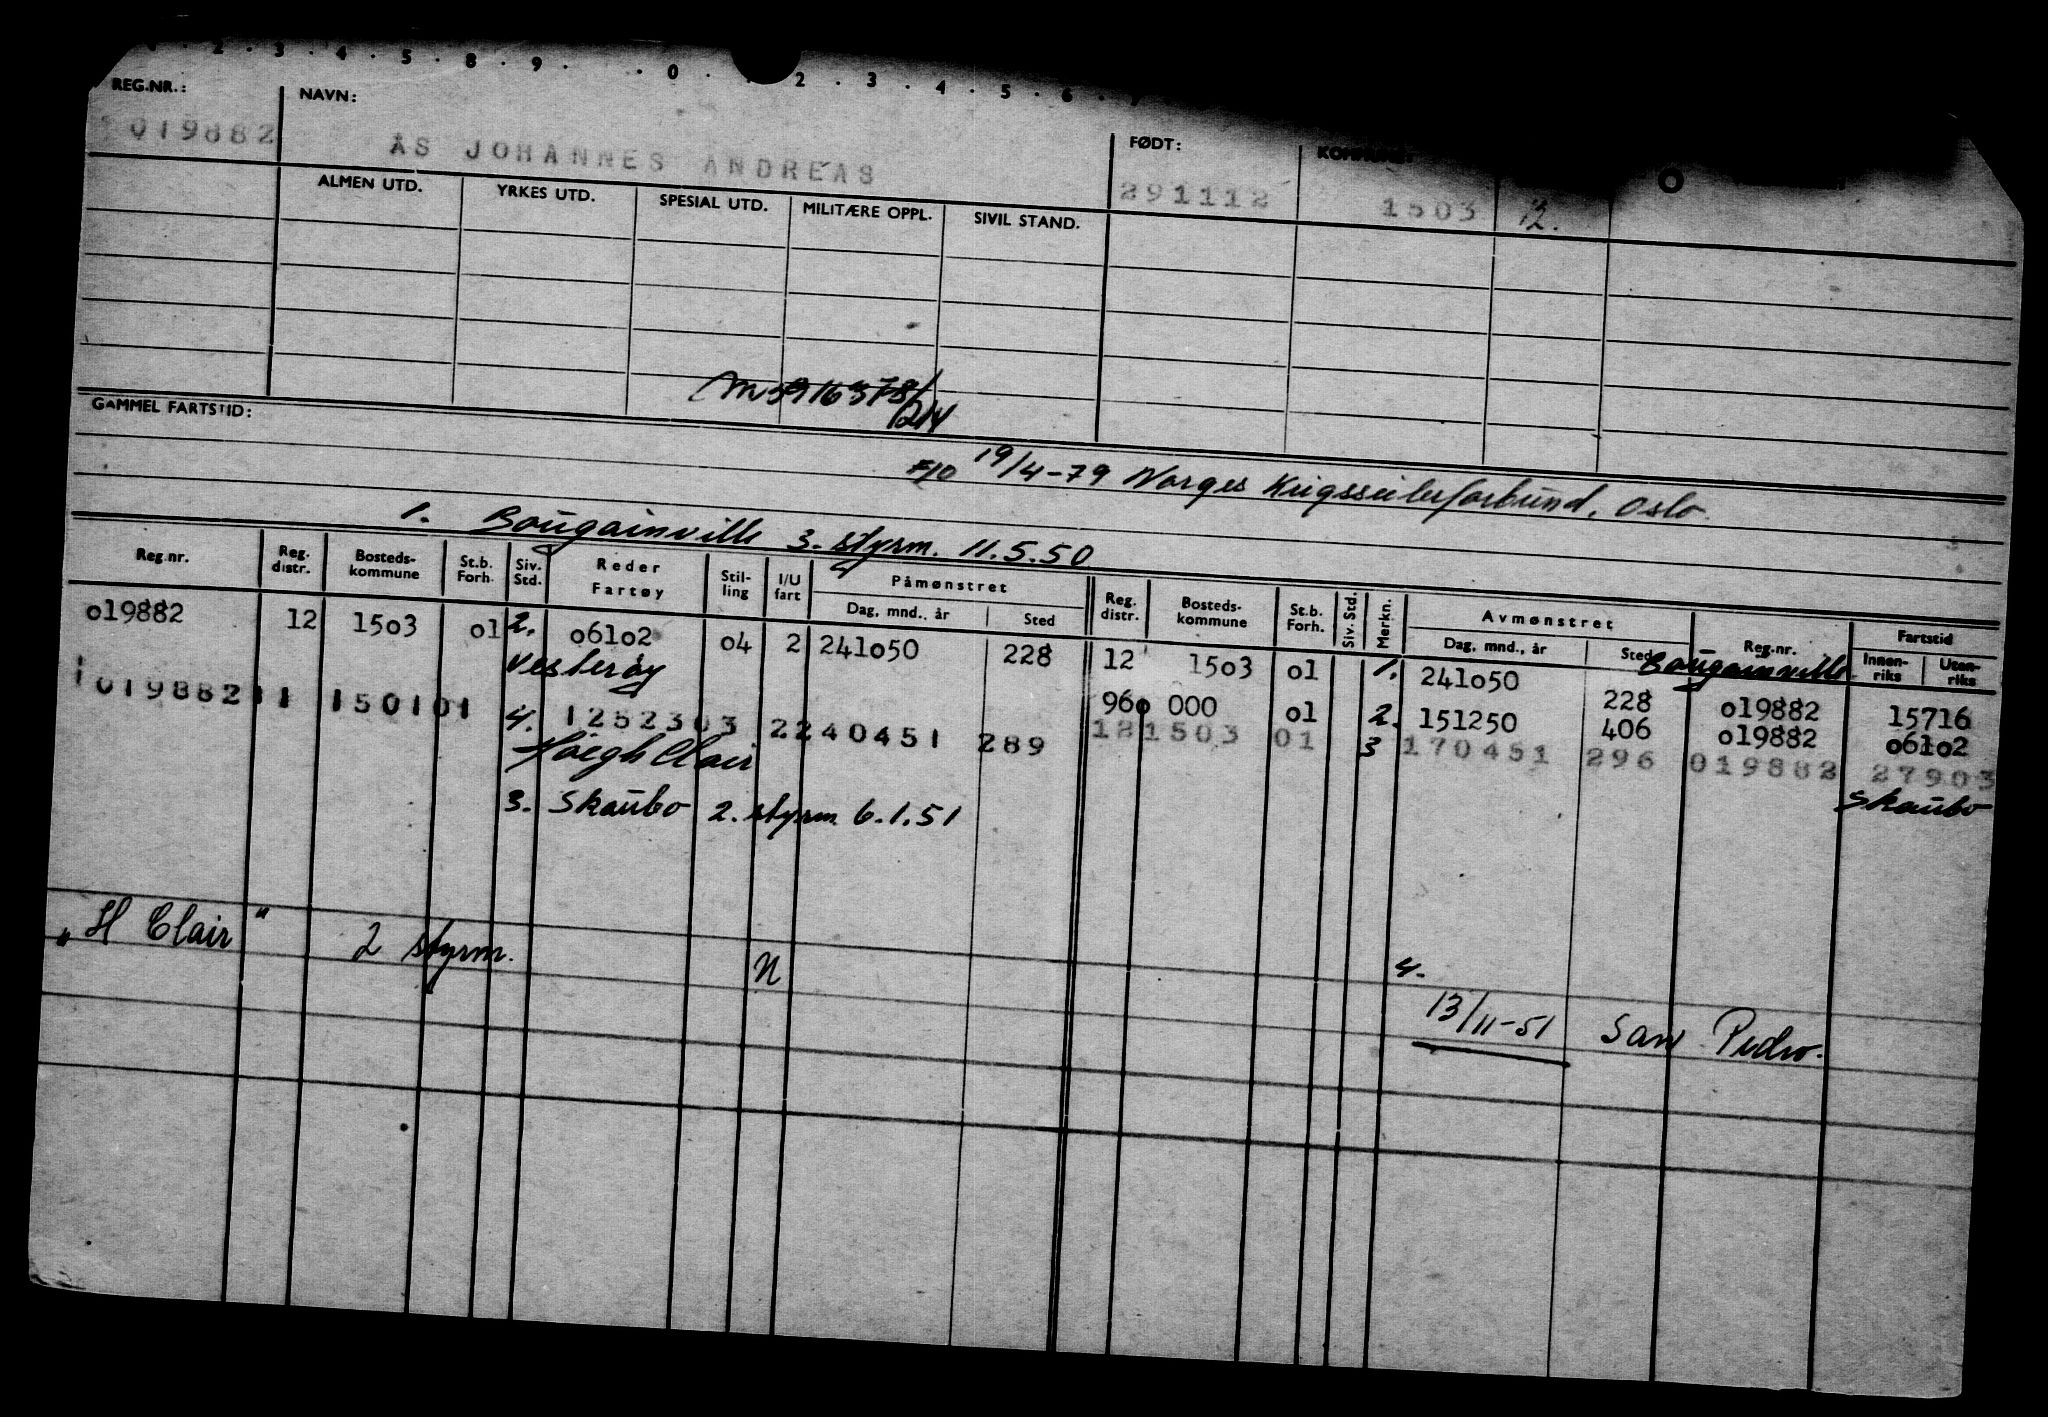 2 . 3 . 4 . 5 . 8 . 9 . . 0 . . 2 . 3 . 4 . 5 . 6 . 7
REG.NR.: NAVN: FØDT:
019882 ÅS JOHANNES ANDREAS 291112 1503 12.
ALMEN UTD. YRKES UTD. SPESIAL UTD. MILITÆRE OPPL. SIVIL STAND.
GAMMEL FARTSTID:
19/4-79 Norges Krigsseilerforbund, Oslo
1. Bougainville 3. styrm. 11.5.50
Reg.nr. Reg. distr. Bosteds-kommune St.b. Forh. Siv. Std. Reder Fartøy Stil-ling I/U fart Påmønstret Dag, mnd., år Sted Reg. distr. Bosteds-kommune St.b. Forh. Siv. Std. Merkn. Avmønstret Dag, mnd., år Sted Reg.nr. Fartstid Innen-riks Uten-riks
Bougainville
o19882 12 15o3 o1 2. o61o2 o4 2 241o50 228 12 15o3 o1 1. 241o50 228 o19882 15716
Vesterøy 96o 000 o1 2. 151250 406 o19882 o61o2
1019882 11 150101 4. 1252303 2240451 289 121503 01 3 170451 296 019882 27903
Høegh Clair Skaubo
3. Skaubo 2. styrm. 6.1.51
"H Clair" 2 styrm. U 4.
13/11-51 San Pedro.